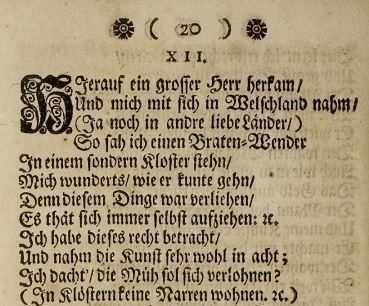 ( 20 )
XII.
HJerauf ein grosser Herr herkam/
Und mich mit sich in Welschland nahm/
(Ja noch in andre liebe Länder/)
So sah ich einen Braten-Wender
Jn einem sondern Kloster stehn/
Mich wunderts/ wie er kunte gehn/
Denn diesem Dinge war verliehen/
Es thät sich immer selbst aufziehen: ꝛc.
Jch habe dieses recht betracht/
Und nahm die Kunst sehr wohl in acht;
Jch dacht'/ die Müh sol sich verlohnen?
(Jn Klöstern keine Narren wohnen. ꝛc.)